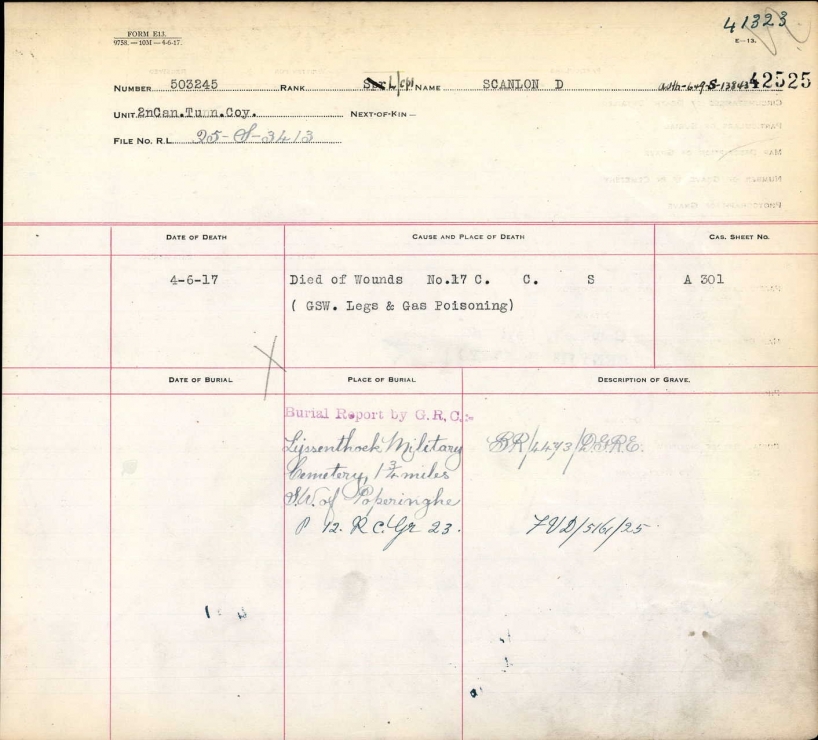 41323
FORM E13.
9758.—10M—4-6-17.
E—13.
NUMBER 503245 RANK Spr L/Cpl NAME SCANLON D 42525
UNIT 2nCan.Tunn.Coy. NEXT-OF-KIN—
FILE NO. R.L. 25-S-3413
DATE OF DEATH CAUSE AND PLACE OF DEATH CAS. SHEET NO.
4-6-17 Died of Wounds No.17 C. C. S A 301
( GSW. Legs & Gas Poisoning)
DATE OF BURIAL PLACE OF BURIAL DESCRIPTION OF GRAVE.
Burial Report by G.R,C:-
Lijssenthoek Military BR/4473/DGRE.
Cemetery, 1 3/4 miles
S.W. of Poperinghe
P 12. R C. Gr 23.